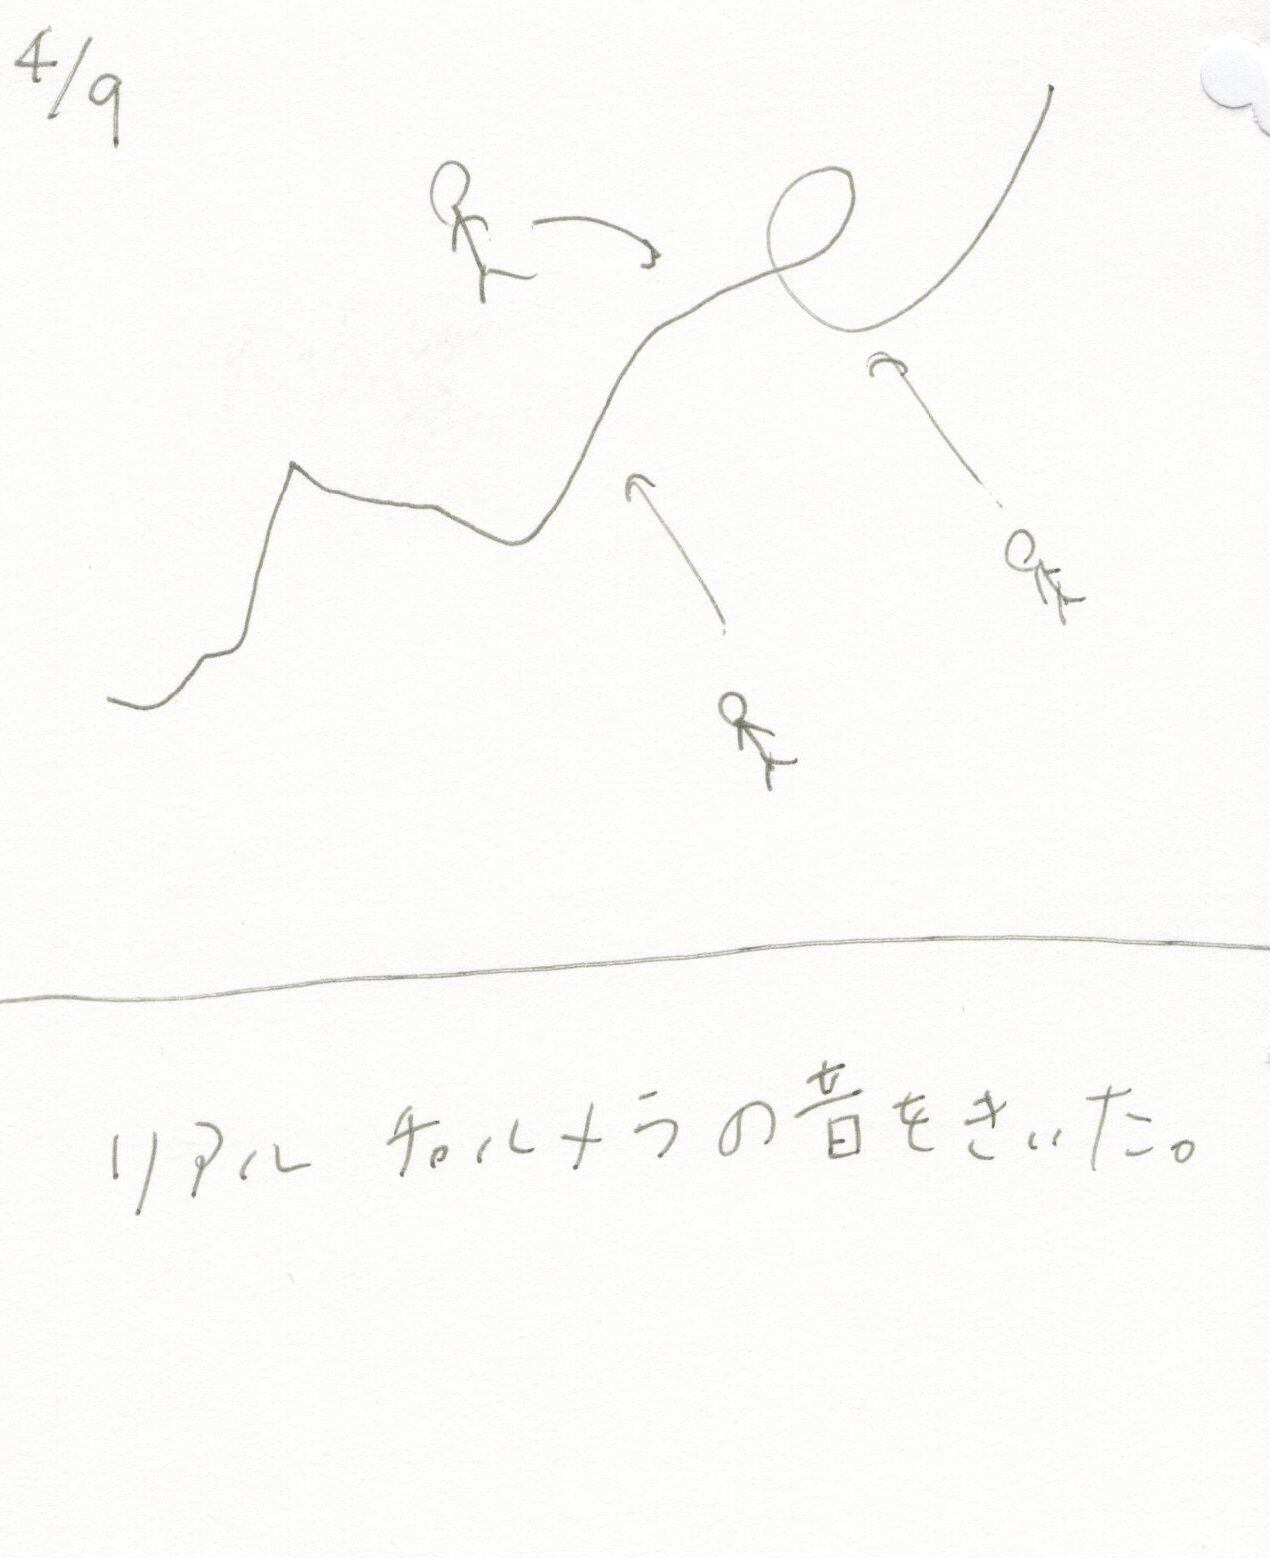 4/9
リアル チャルメラの音をきいた。